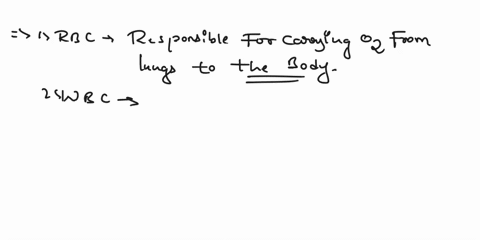 => 1) RBC → Responsible For carrying O2 From
lungs to the Body.
2) WBC →